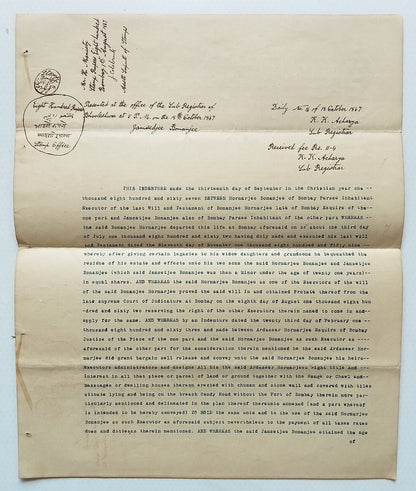 No. the
Stamp Rupees Eight hundred
Bombay 13th August 187
Addl Supdt of Stamps
Eight Hundred Rupees
Stamp Office
Presented at the office of the Sub Registrar of
at 5 P.M. on the 14th October 1867
Jamsedjee Bomanjee
Daily No. 4 of 14 October 1867
K. K. Acharya
Sub Registrar
Received fee Rs. 11-4
K. K. Acharya
Sub Registrar
THIS INDENTURE made the thirteenth day of September in the Christian year one --
thousand eight hundred and sixty seven BETWEEN Hormarjee Bomanjee of Bombay Parsee Inhabitant
Executor of the Last Will and Testament of Bomanjee Hormarjee late of Bombay Esquire of the-
one part and Jamsetjee Bomanjee also of Bombay Parsee Inhabitant of the other part WHEREAS --
the said Bomanjee Hormarjee departed this life at Bombay aforesaid on or about the third day
of July one thousand eight hundred and sixty two having duly made and executed his last Will
and Testament dated the Eleventh day of November one thousand eight hundred and fifty nine--
whereby after giving certain legacies to his widow daughters and grandsons he bequeathed the
residue of his estate and effects unto his two sons the said Hormarjee Bomanjee and Jamsetjee
Bomanjee (which said Jamsetjee Bomanjee was then a Minor under the age of twenty one years)--
in equal shares. AND WHEREAS the said Hormarjee Bomanjee as one of the Executors of the will
of the said Bomanjee Hormarjee proved the said will in and obtained Probate thereof from the
late supreme Court of Judicature at Bombay on the eighth day of August one thousand eight hun
-dred and sixty two reserving the right of the other Executors therein named to come in and--
apply for the same. AND WHEREAS by an Indenture dated the twenty third day of February one --
thousand eight hundred and sixty three and made between Ardaseer Hormarjee Esquire of Bombay
Justice of the Piece of the one part and the said Hormarjee Bomanjee as such Executor as --
aforesaid of the other part for the consideration therein mentioned he the said Ardaseer Hor-
marjee did grant bargain sell release and convey unto the said Hormarjee Bomanjee his heirs--
Executors administrators and assigns All his the said Ardaseer Hormarjees right title and --
interest in all that piece or parcel of land or ground together with the Range or Chawl and--
messuages or dwelling houses thereon erected with chunam and stone wall and covered with tiles
situate lying and being on the breach Candy Road without the Fort of Bombay therein more par-
ticularly mentioned and delineated in the plan thereof thereunto annexed (and a part whereof
is intended to be hereby conveyed) TO HOLD the same unto and to the use of the said Hormarjee
Bomanjee as such Executor as aforesaid subject nevertheless to the payment of all taxes rates
dues and duties therein mentioned. AND WHEREAS the said Jamsetjee Bomanjee attained the age
of